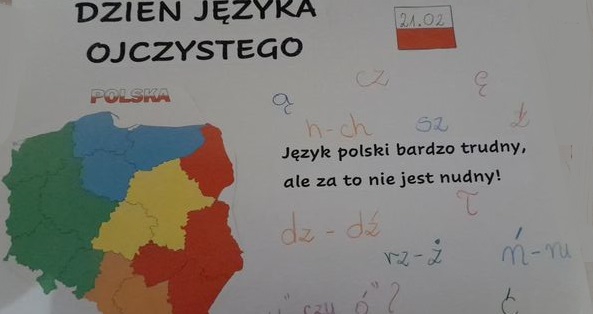 DZIEŃ JĘZYKA
OJCZYSTEGO
21.02
POLSKA
cz
ę
ą
h-ch
sz
ł
Język polski bardzo trudny,
ale za to nie jest nudny!
dz - dź
rz-ż
czy ó"?
ć